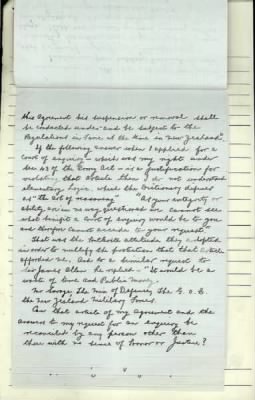 this Agreement his suspension or removal shall
be conducted under and be subject to the
Regulations in force at the time in New Zealand".
If the following answer when I applied for a
Court of enquiry – which was my right under
Sec of the Army Act – is a justification for
violating that article then I do not understand
elementary logic. which the dictionary defines
as "the art of reasoning". "As your integrity or
ability are in no way questioned we cannot see
what benefit a court of enquiry would be to you
and therefore cannot accede to your request."
That was the attitude they adopted
in order to nullify the protection that that article
afforded me. And to a similar request to
Sir James Allen he replied – "It would be a
waste of time and Public Money.
Mr Savage, The Min of Defence, The G.O.C.
the New Zealand Military Forces.
Can that article of my Agreement and the
answers to my request for an enquiry be
reconciled by any person other than
those with no sense of Honor or Justice?